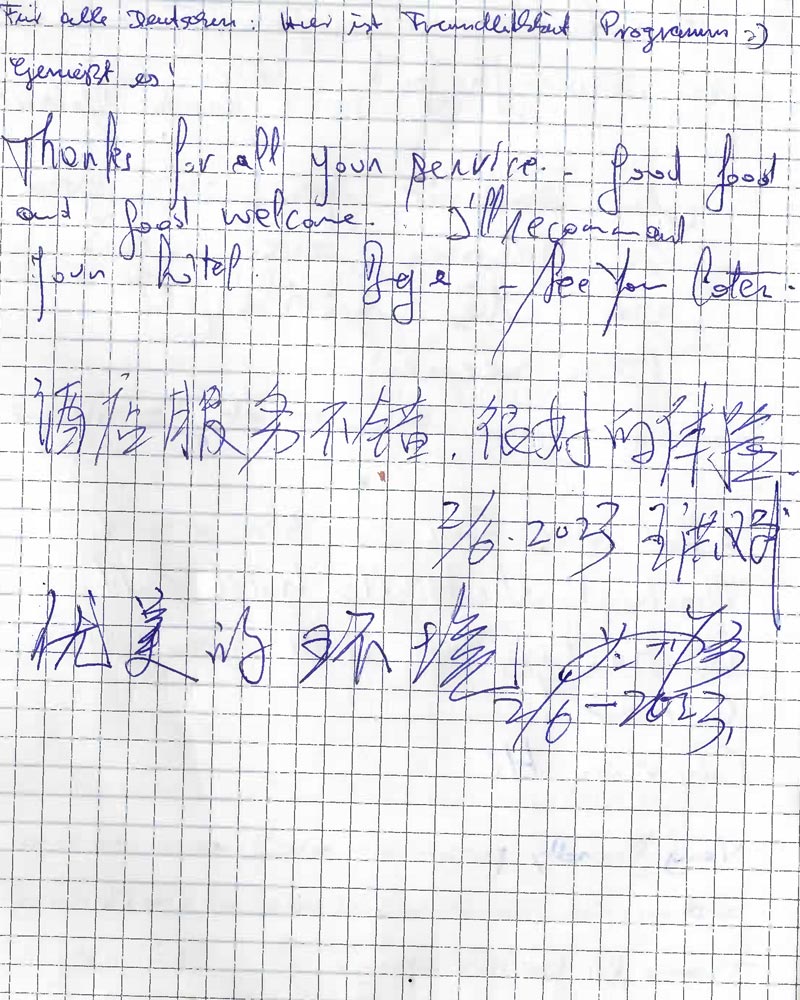 Für alle Deutschen: Hier ist Freundlichkeit Programm :)
Genießt es!
Thanks for all your service. - good food
and good welcome. I'll recommand
your hôtel. Bye - See You Later.
酒店服务不错. 很好的体验
2/6.2023
优美的环境!
2/6-2023